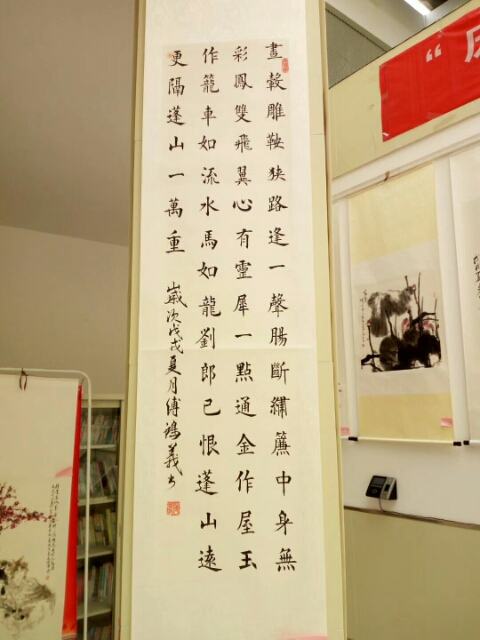 畫轂雕鞍狹路逢一聲腸斷繡簾中身無
彩鳳雙飛翼心有靈犀一點通金作屋玉
作籠車如流水馬如龍劉郎已恨蓬山遠
更隔蓬山一萬重
歲次戊戌夏月傅鴻義书
“庆